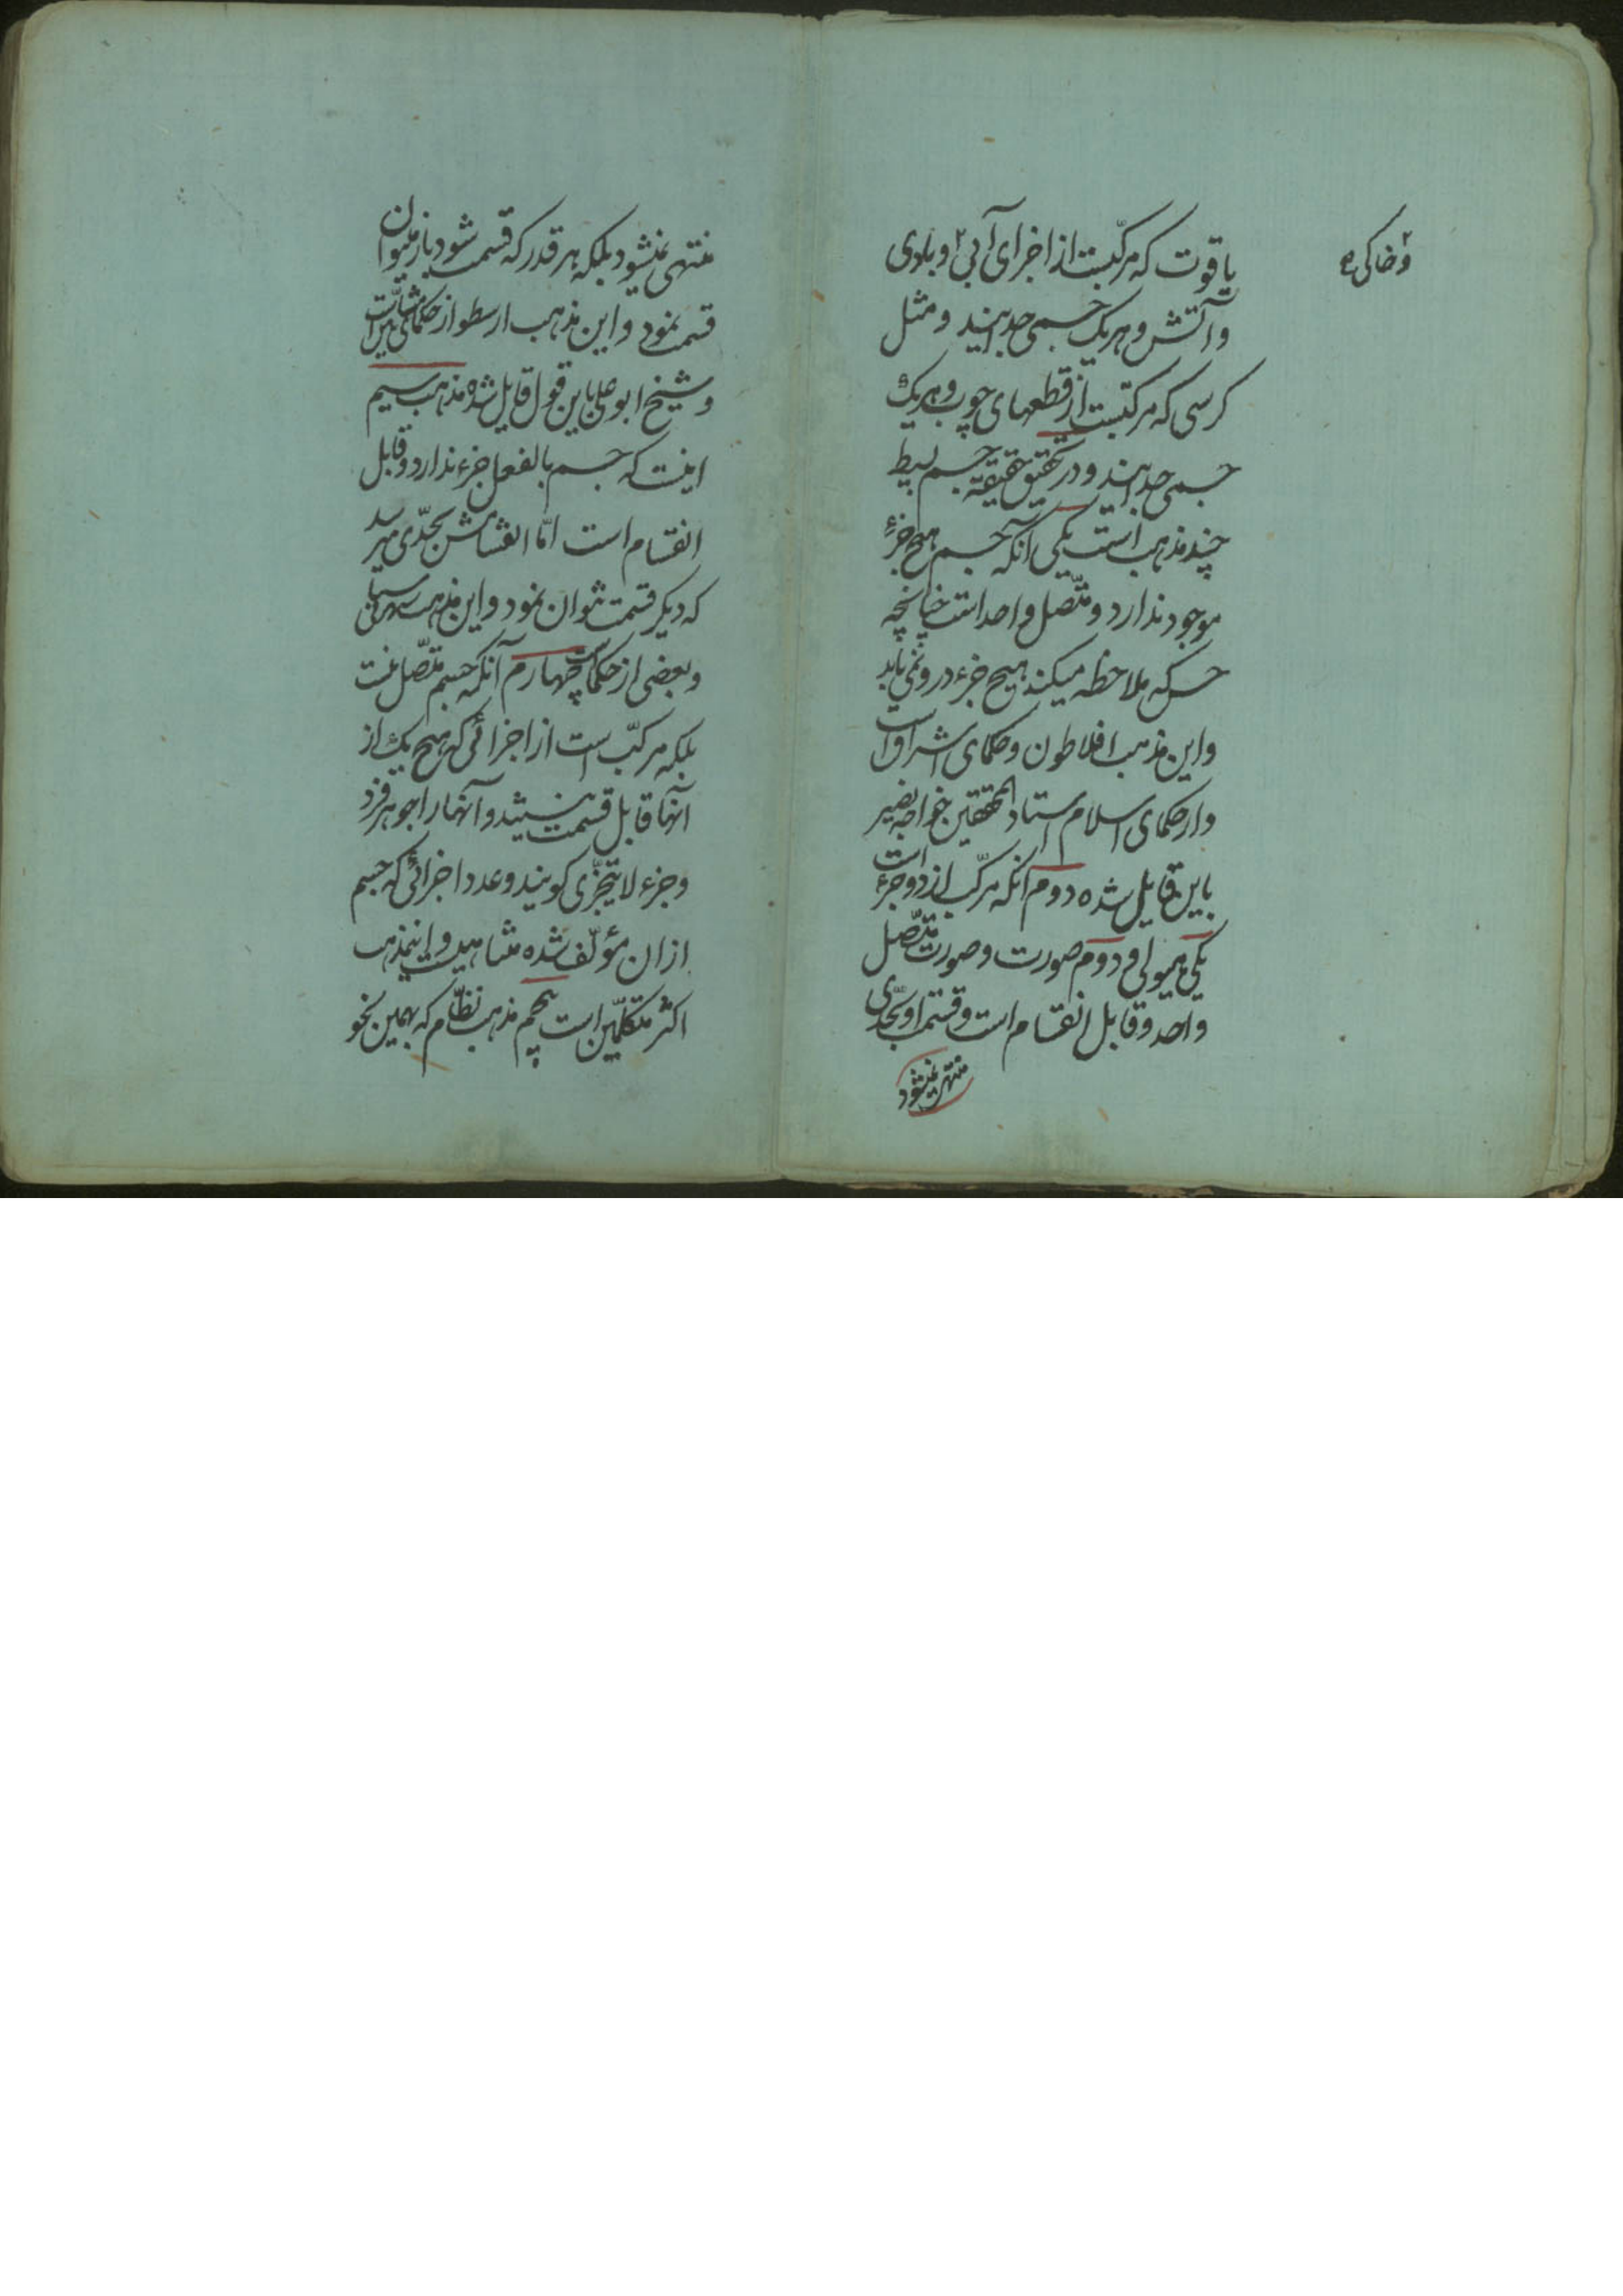 یاقوت که مرکبست از اجزای آبی و بادی
و خاکی
و آتش و هر یک جسمی جدایند و مثل
کرسی که مرکبست از قطعهای چوب و هر یک
جسمی جدایند و در تحقیق حقیقة جسم بسیط
چند مذهب است یکی آنکه جسم هیچ جزء
موجود ندارد و متّصل واحد است چنانچه
حس که ملاحظه میکند هیچ جزء درو نمی یابد
و این مذهب افلاطون و حکمای اشراق است
و از حکمای اسلام استاد المحققین خواجه نصیر
باین قایل شده دوم آنکه مرکّب از دو جزء است
یکی هیولی و دوم صورت و صورت متّصل
واحد و قابل انقسام است و قسمت او بحدّی
منتهی نمیشود
منتهی نمیشود بلکه هر قدر که قسمت شود باز میتوان
قسمت نمود و این مذهب ارسطو از حکمای مشائین است
و شیخ ابو علی باین قول قایل شده مذهب سیم
اینست که جسم بالفعل جزء ندارد و قابل
انقسام است امّا انقسامش بحدّی میرسد
که دیکر قسمت نتوان نمود و این مذهب شهرستانی
و بعضی از حکماست چهارم آنکه جسم متّصل نیست
بلکه مرکّب است از اجزائی که هیچ یک از
آنها قابل قسمت نیستند و آنها را جوهر فرد
و جزء لا یتجزّی کویند و عدد اجزائی که جسم
از ان مؤلّف شده متناهیست و اینمذهب
اکثر متکلّمین است پنجم مذهب نظّام که بهمین نحو